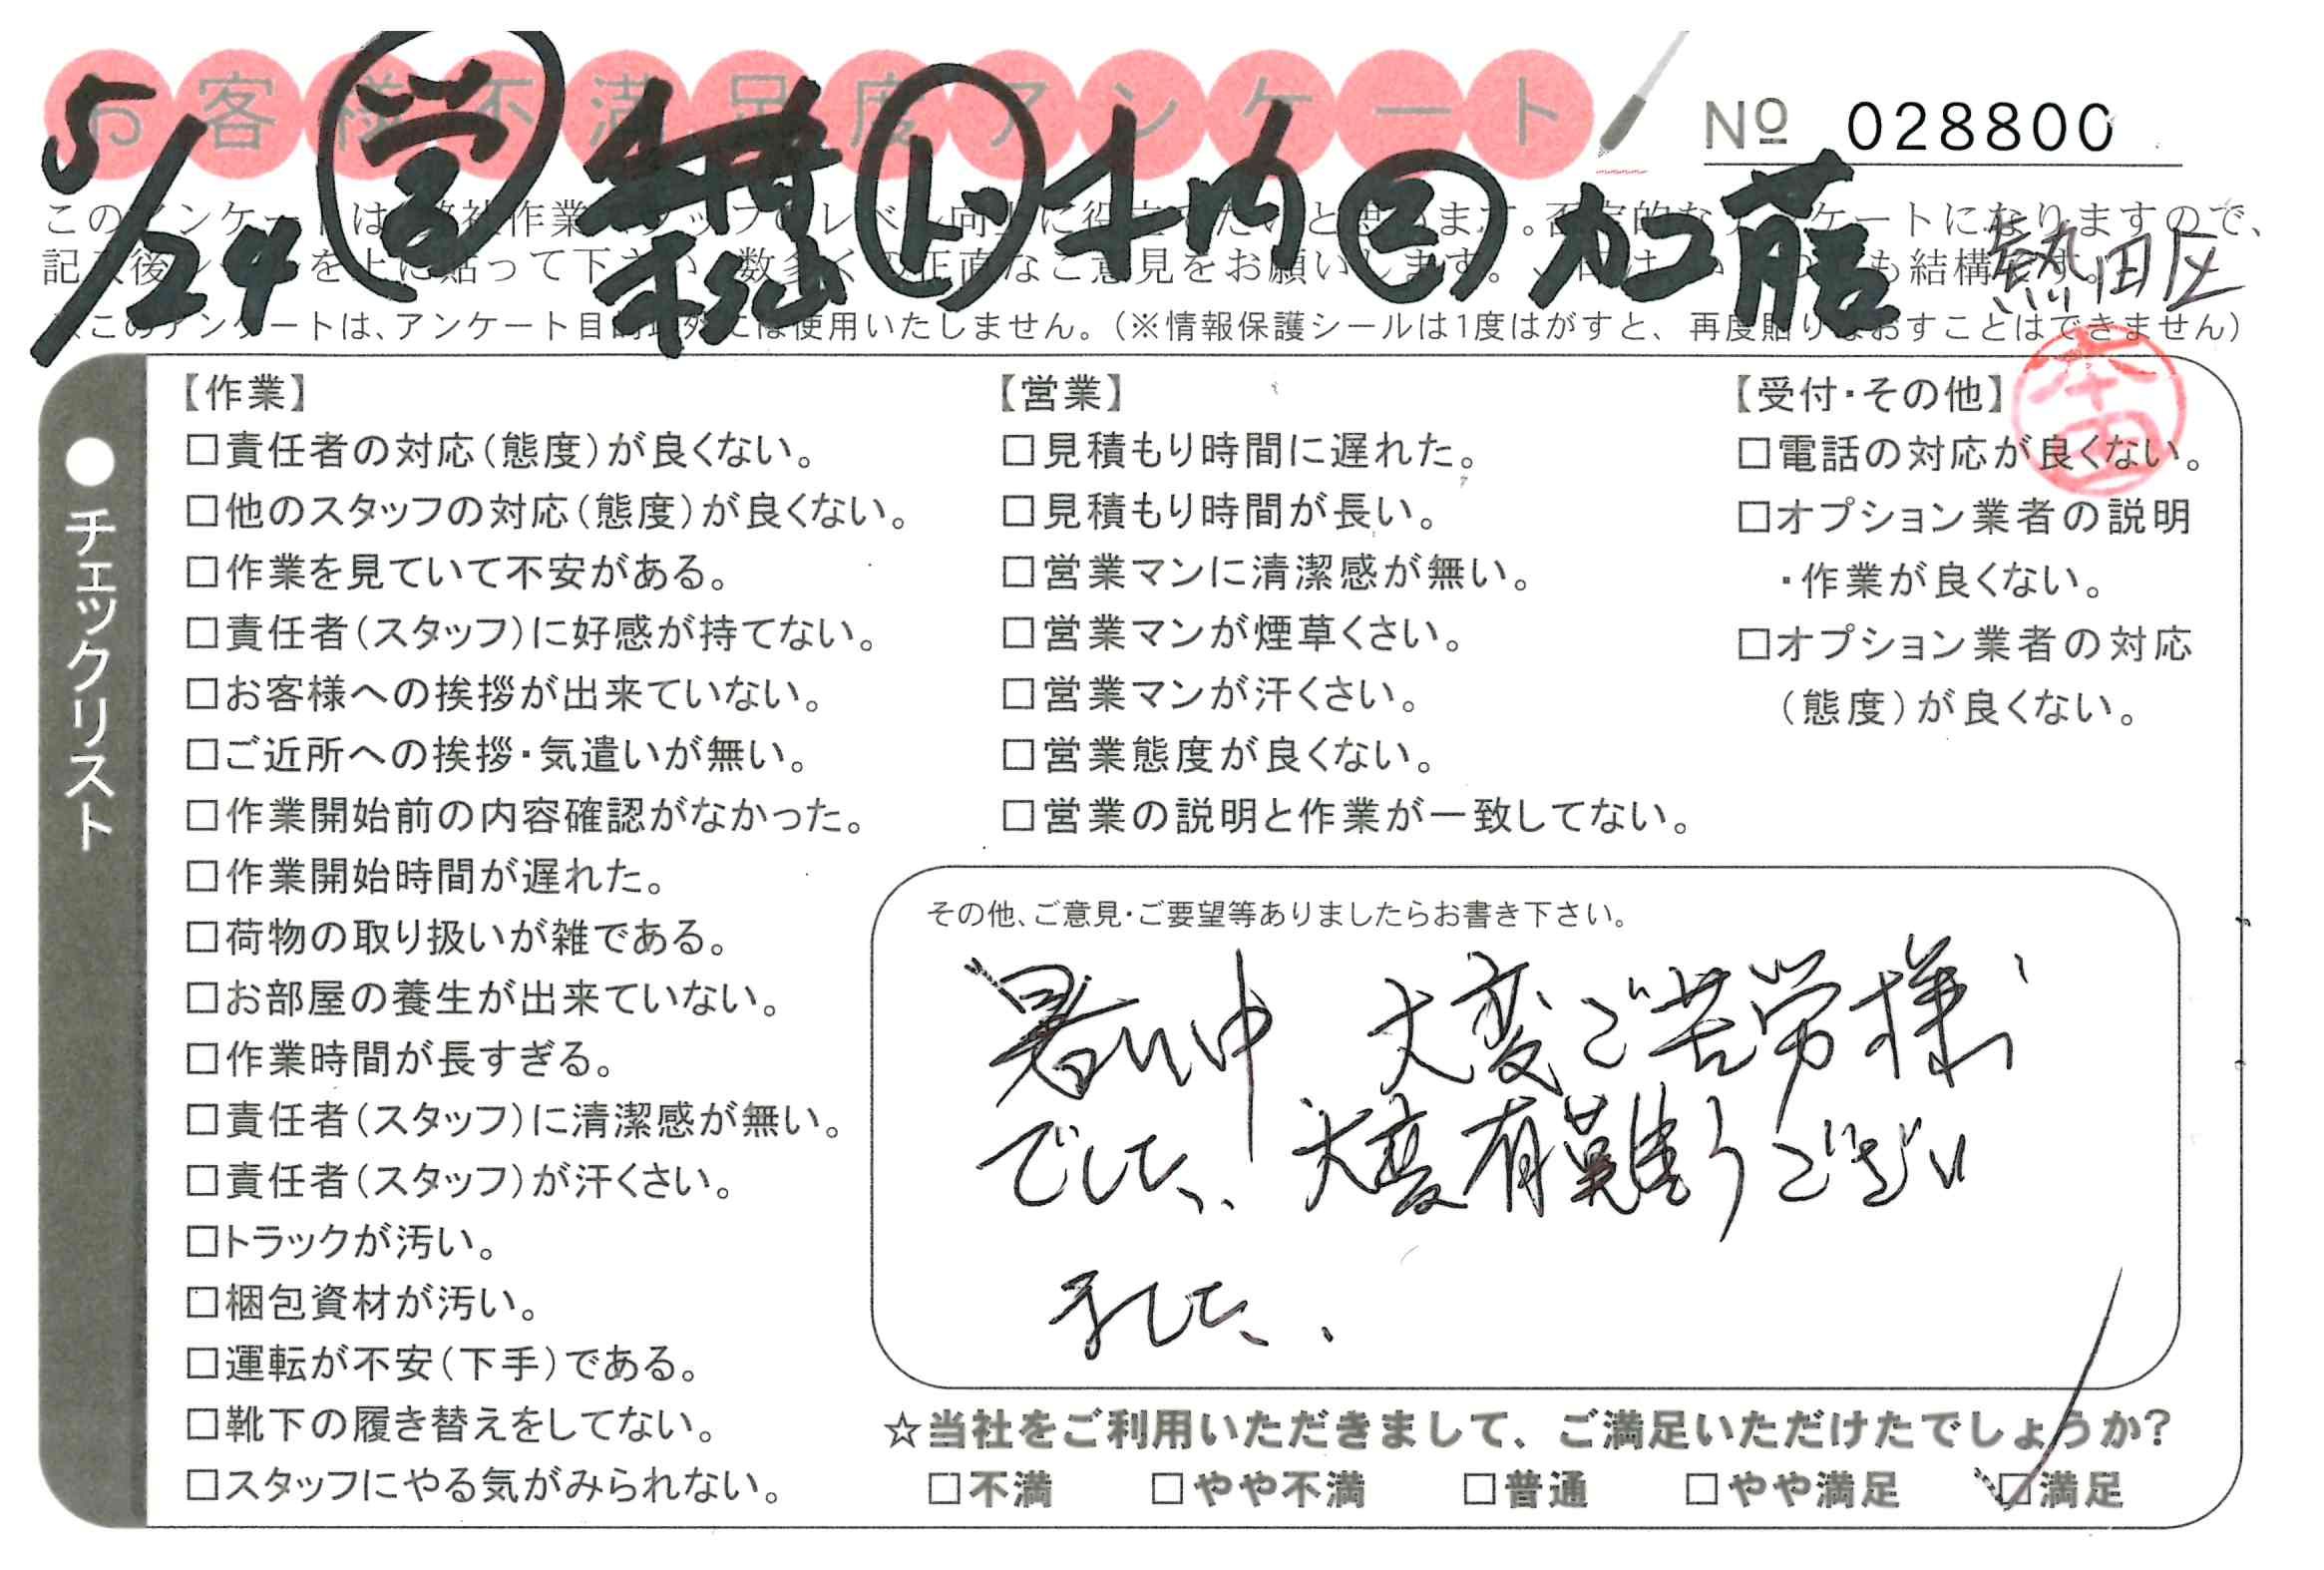 お客様不満足度アンケート
№ 028800
5/24 ㋳ ㋣ 木内 加藤
熱田区
このアンケートは、弊社作業スタッフのレベル向上に役立てたいと思います。否定的なアンケートになりますので、
記入後シールを上に貼って下さい。数多くの正直なご意見をお願いします。
※このアンケートは、アンケート目的以外には使用いたしません。(※情報保護シールは1度はがすと、再度貼りなおすことはできません)
本田
●チェックリスト
【作業】
□責任者の対応(態度)が良くない。
□他のスタッフの対応(態度)が良くない。
□作業を見ていて不安がある。
□責任者(スタッフ)に好感が持てない。
□お客様への挨拶が出来ていない。
□ご近所への挨拶・気遣いが無い。
□作業開始前の内容確認がなかった。
□作業開始時間が遅れた。
□荷物の取り扱いが雑である。
□お部屋の養生が出来ていない。
□作業時間が長すぎる。
□責任者(スタッフ)に清潔感が無い。
□責任者(スタッフ)が汗くさい。
□トラックが汚い。
□梱包資材が汚い。
□運転が不安(下手)である。
□靴下の履き替えをしてない。
□スタッフにやる気がみられない。
【営業】
□見積もり時間に遅れた。
□見積もり時間が長い。
□営業マンに清潔感が無い。
□営業マンが煙草くさい。
□営業マンが汗くさい。
□営業態度が良くない。
□営業の説明と作業が一致してない。
【受付・その他】
□電話の対応が良くない。
□オプション業者の説明
・作業が良くない。
□オプション業者の対応
(態度)が良くない。
その他、ご意見・ご要望等ありましたらお書き下さい。
暑い中 大変ご苦労様
でした、大変有難うござい
ました、
☆当社をご利用いただきまして、ご満足いただけたでしょうか?
□不満 □やや不満 □普通 □やや満足 ☑満足